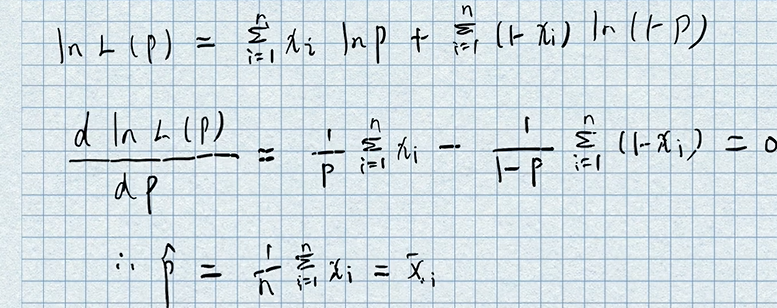 ln L(p) = \sum_{i=1}^{n} x_i ln p + \sum_{i=1}^{n} (1-x_i) ln(1-p)
\frac{d ln L(p)}{dp} = \frac{1}{p} \sum_{i=1}^{n} x_i - \frac{1}{1-p} \sum_{i=1}^{n} (1-x_i) = 0
∴ \hat{p} = \frac{1}{n} \sum_{i=1}^{n} x_i = \bar{x}_i